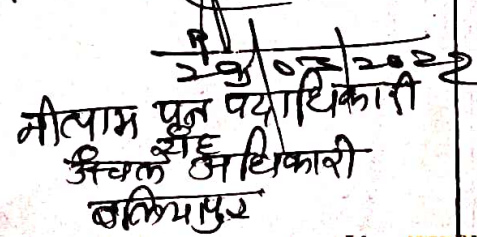 29/07/2022
नीलाम पत्र पदाधिकारी
सह
अंचल अधिकारी
बलियापुर